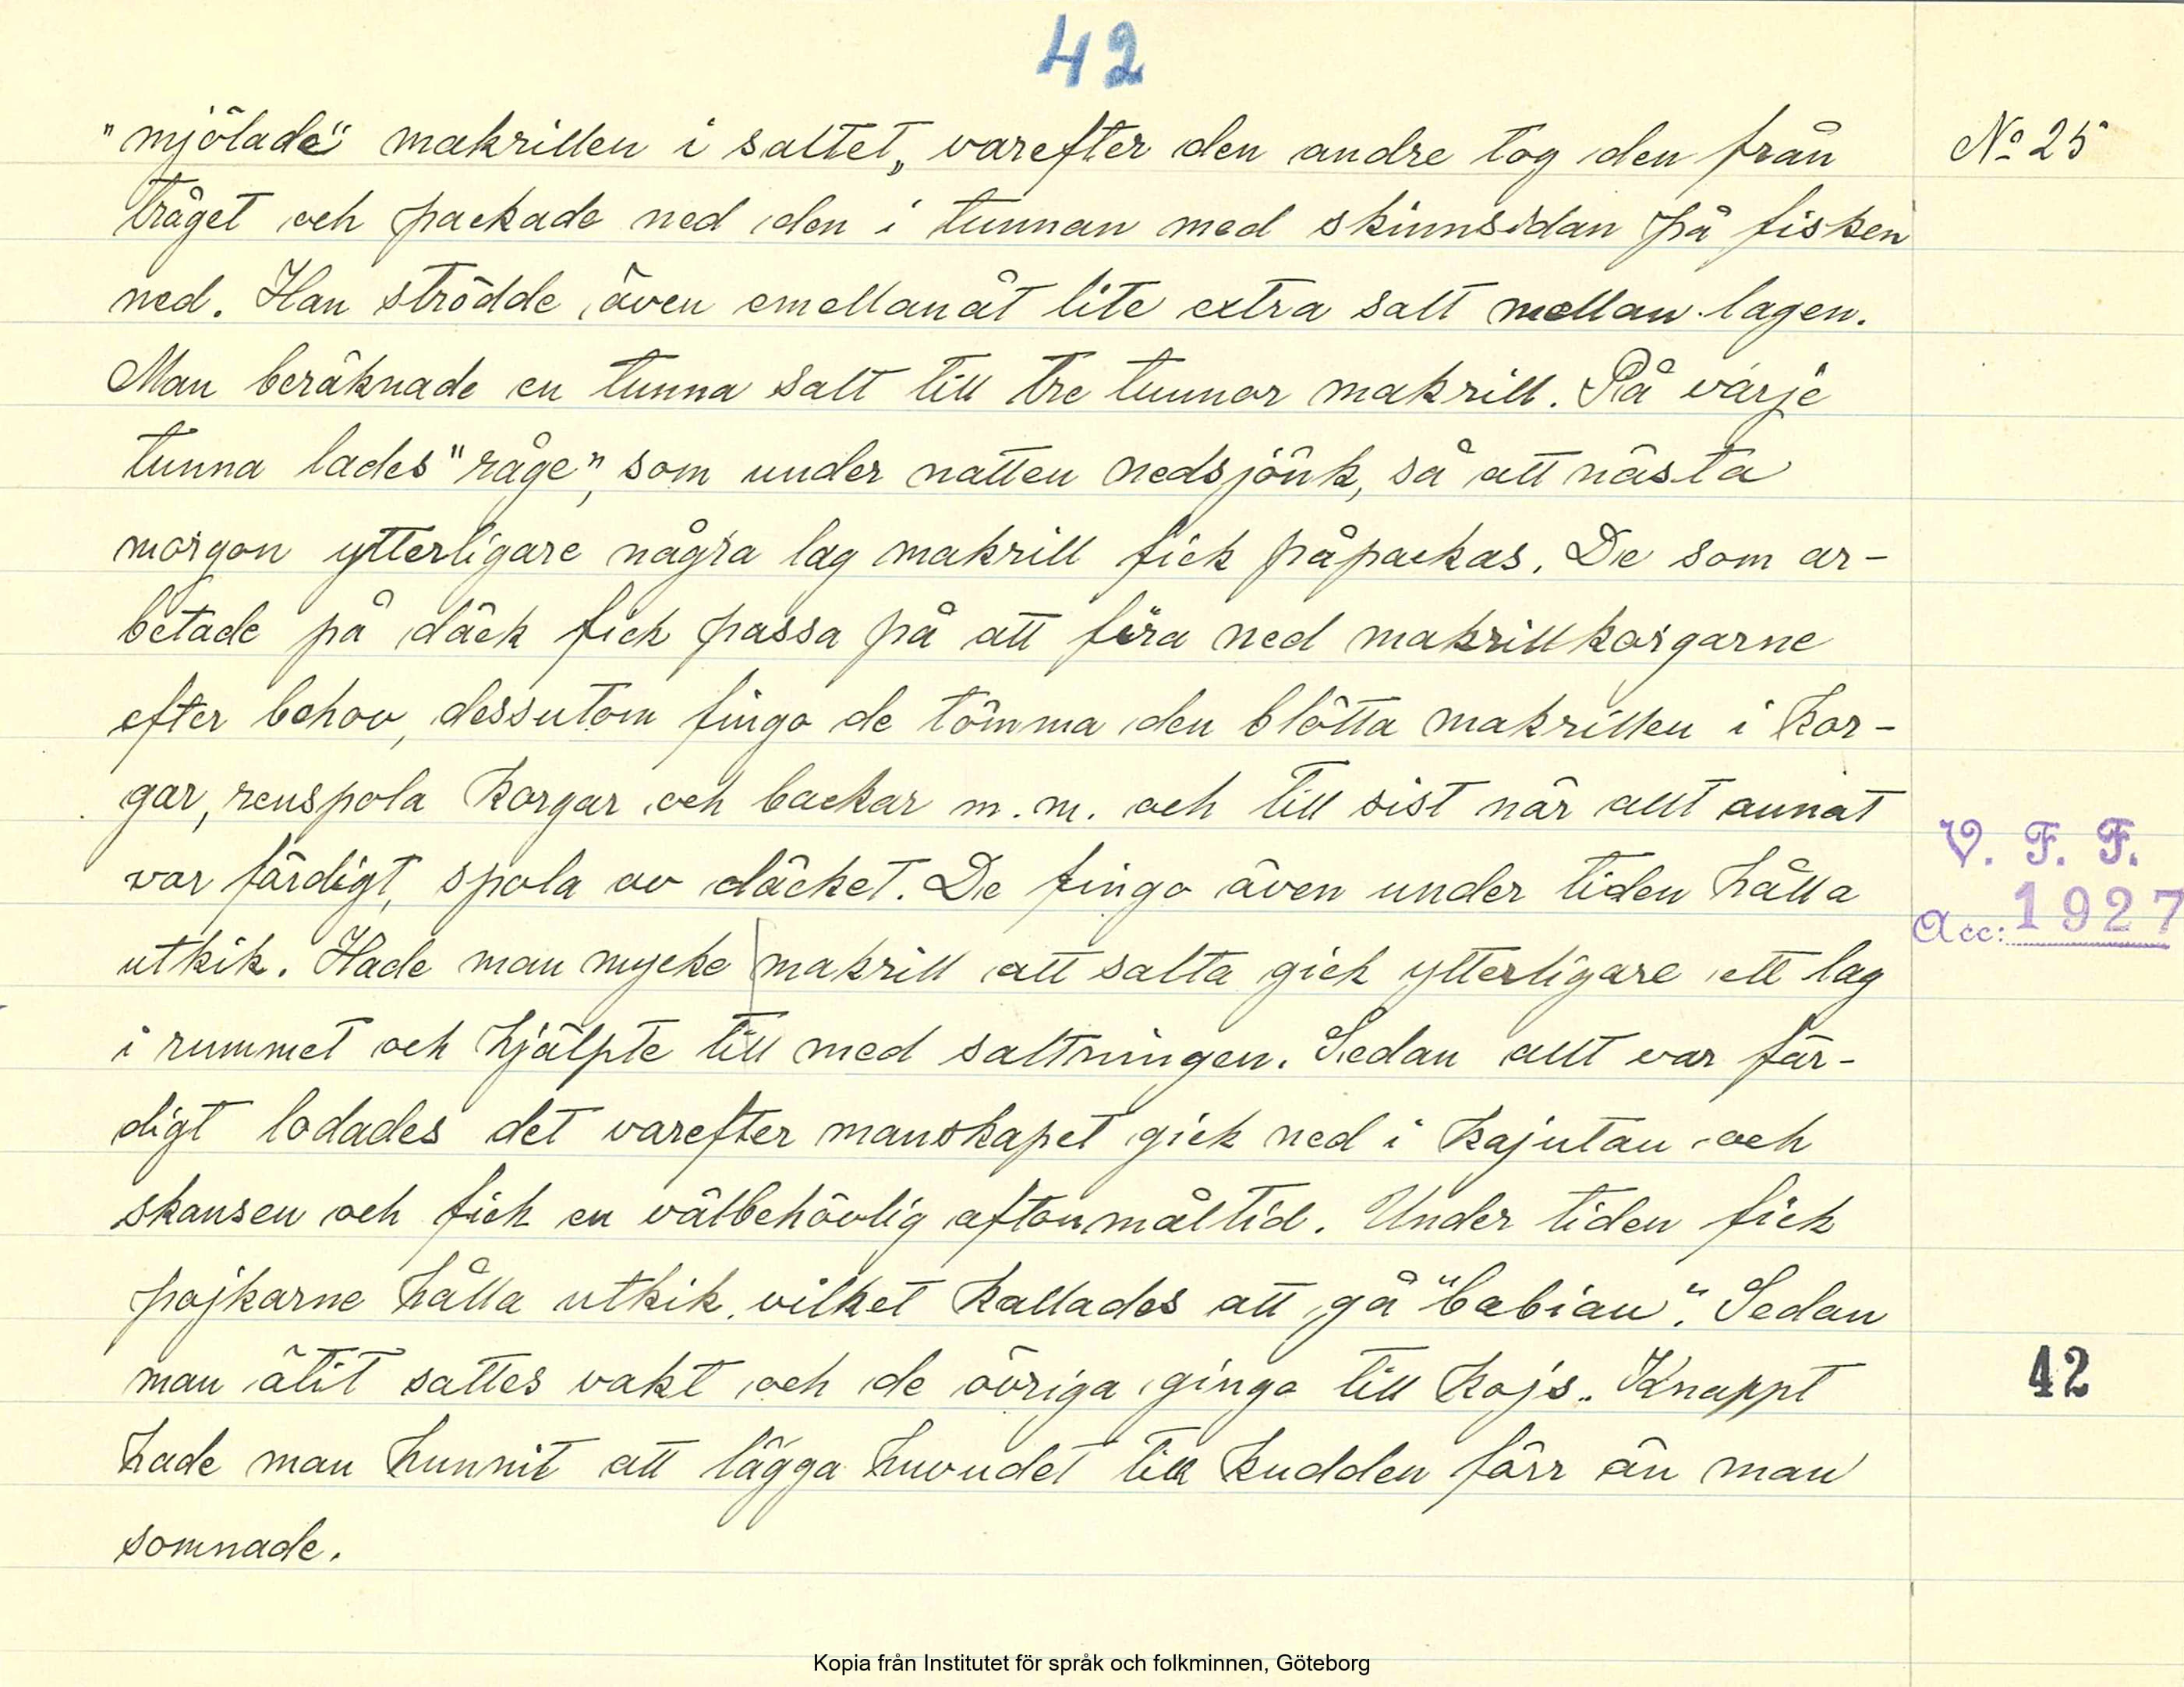 42
"mjölade" makrillen i saltet, varefter den andre tog den från
tråget och packade ned den i tunnan med skinnsidan på fisken
ned. Han strödde även emellanåt lite extra salt mellan lagen.
Man beräknade en tunna salt till tre tunnor makrill. På varje
tunna lades "råge", som under natten nedsjönk, så att nästa
morgon ytterligare några lag makrill fick påpackas. De som ar-
betade på däck fick passa på att fira ned makrillkorgarne
efter behov, dessutom fingo de tömma den blötta makrillen i kor-
gar, renspola korgar och backar m.m. och till sist när allt annat
var färdigt, spola av däcket. De fingo även under tiden hålla
utkik. Hade man mycke makrill att salta gick ytterligare ett lag
i rummet och hjälpte till med saltningen. Sedan allt var fär-
digt lodades det varefter manskapet gick ned i kajutan och
skansen och fick en välbehövlig aftonmåltid. Under tiden fick
pojkarne hålla utkik, vilket kallades att gå "babian". Sedan
man ätit sattes vakt och de övriga gingo till kojs. Knappt
hade man hunnit att lägga huvudet till kudden förr än man
somnade.
No 25
V. F. F.
Acc: 1927
42
Kopia från Institutet för språk och folkminnen, Göteborg